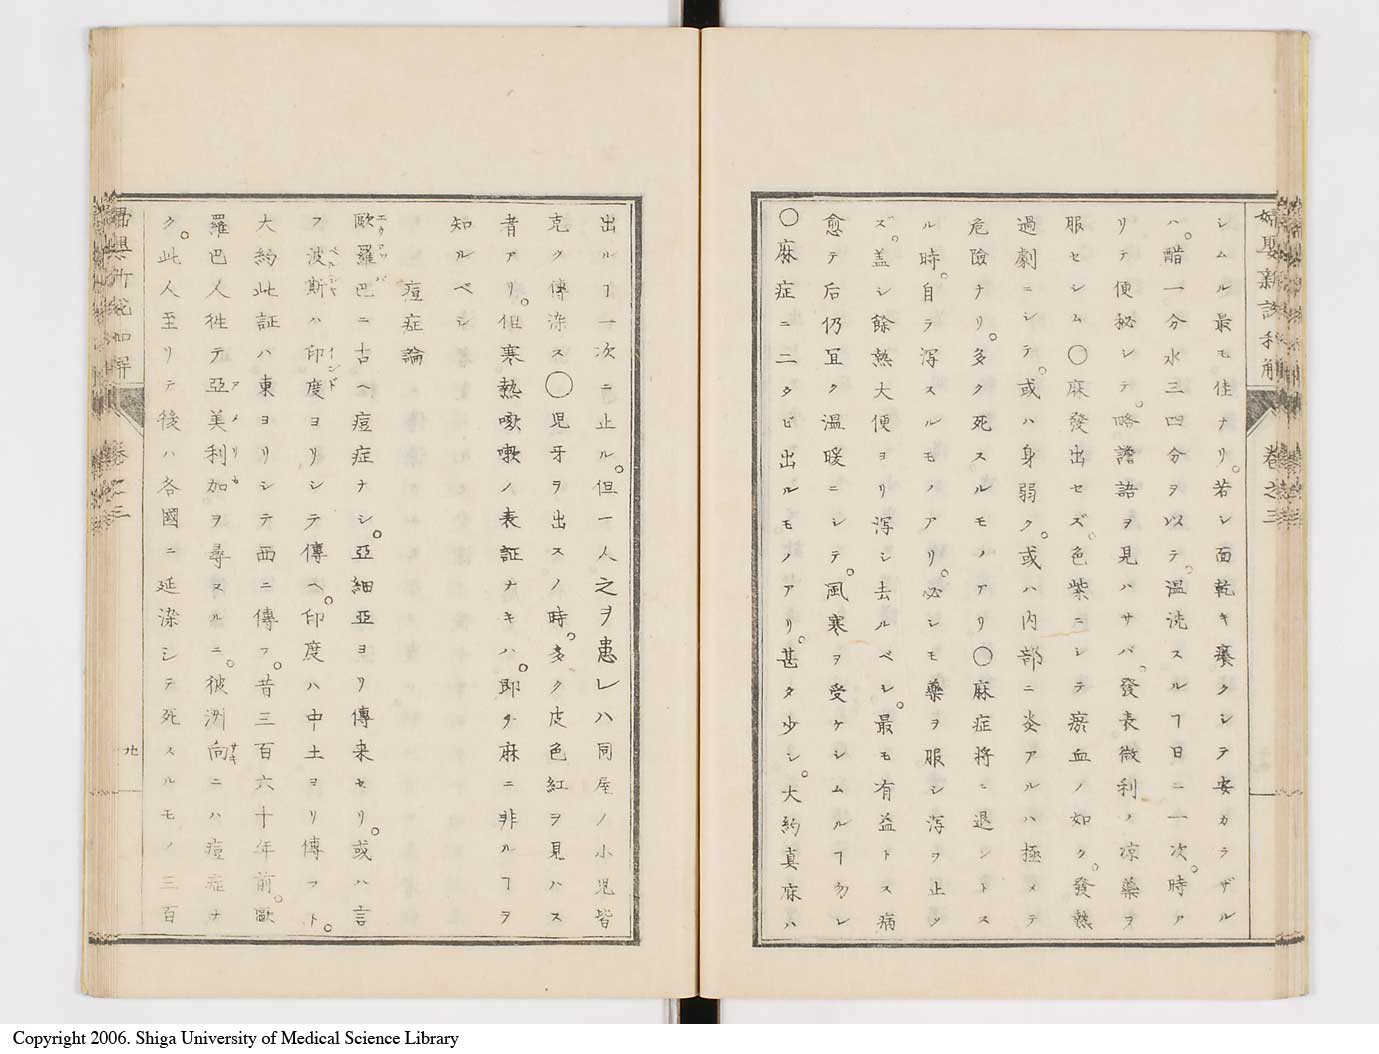 婦嬰新説和解
卷之三
シムル最モ佳ナリ。若シ面乾キ癢クシテ安カラザル
ハ。醋一分水三四分ヲ以テ。温洗スルヿ日ニ一次。時ア
リテ便秘シテ。略譫語ヲ見ハサバ。發表微利ノ凉藥ヲ
服セシム〇麻發出セズ。色紫ニシテ瘀血ノ如ク。發熱
過劇ニシテ。或ハ身弱ク。或ハ内部ニ炎アルハ極メテ
危險ナリ。多ク死スルモノアリ〇麻症将ニ退ントス
ル時。自ラ瀉スルモノアリ。必シモ藥ヲ服シ瀉ヲ止ケ
ズ。蓋シ餘熱大便ヨリ瀉シ去ルベシ。最モ有益トス病
愈テ后仍宜ク温暖ニシテ。風寒ヲ受ケシムルヿ勿レ
〇麻症ニ二タビ出ルモノアリ。甚タ少シ。大約真麻ハ
出ルヿ一次ニ止ル。但一人之ヲ患レハ同屋ノ小児皆
克ク傳染ス〇児牙ヲ出スノ時。多ク皮色紅ヲ見ハス
者アリ。但寒熱咳嗽ノ表証ナキハ。即チ麻ニ非ルヿヲ
知ルベシ
痘症論
歐羅巴ニ古ヘ痘症ナシ。亞細亞ヨリ傳来セリ。或ハ言
エウロッパ
フ波斯ハ印度ヨリシテ傳ヘ。印度ハ中土ヨリ傳フト。
ペルシヤ インド
大約此証ハ東ヨリシテ西ニ傳フ。昔三百六十年前。歐
羅巴人徃テ亞美利加ヲ尋スルニ。彼洲向ニハ痘症ナ
アメリカ サキ
ク。此人至リテ後ハ各國ニ延染シテ死スルモノ三百
卷之三
九
Copyright 2006. Shiga University of Medical Science Library